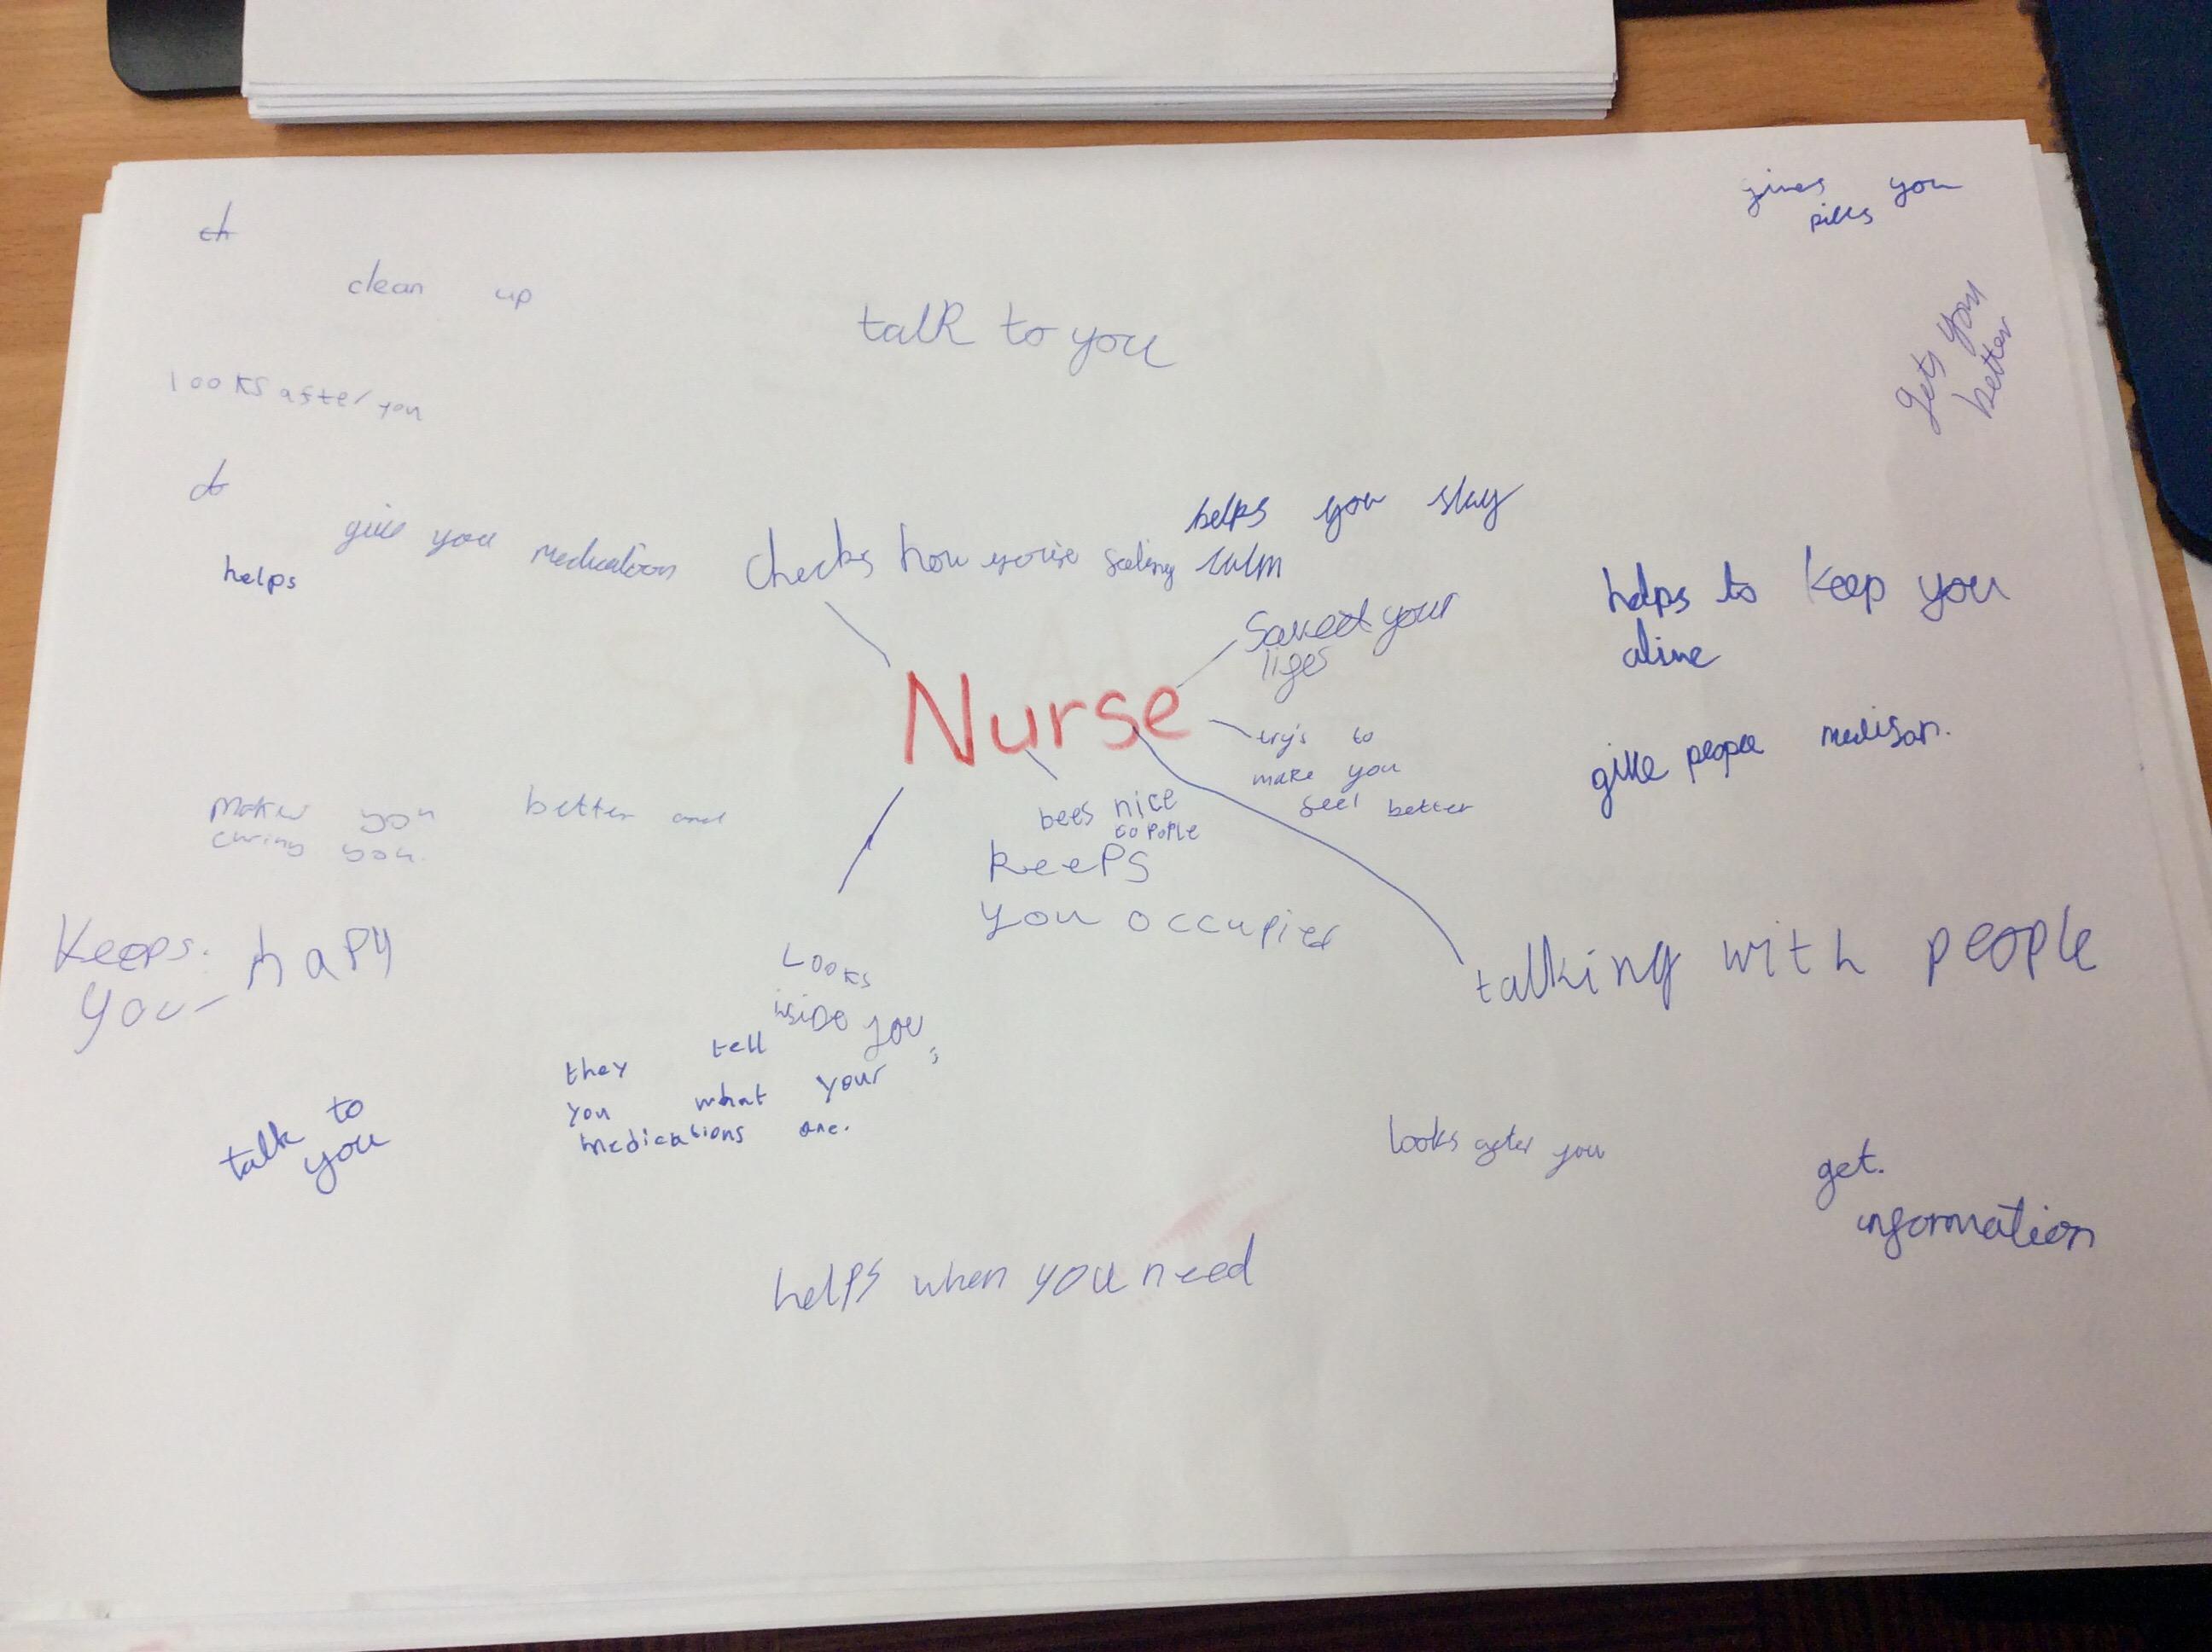 gives you
pills
clean up
talk to you
gets you
better
looks after you
helps you stay
calm
give you medication
checks how you're feeling
helps
helps to keep you
alive
Saved your
lifes
Nurse
try's to
make you
feel better
give people medisan.
makes you better and
curing you.
bees nice
to pople
keeps
you occupied
keeps
you hapy
talking with people
Looks
inside you
they tell
you what your
medications are.
talk to
you
looks after you
get
information
helps when you need